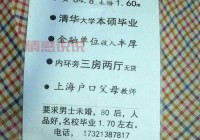 84.8. 未婚 1.60米
情感说说
●清华大学本硕毕业
●金融单位收入丰厚
●内环旁三房两厅无贷
●上海户口父母教师
要求男士未婚, 80 后, 人
品好, 名校毕业 1.70 左右。
电话, 17321387817